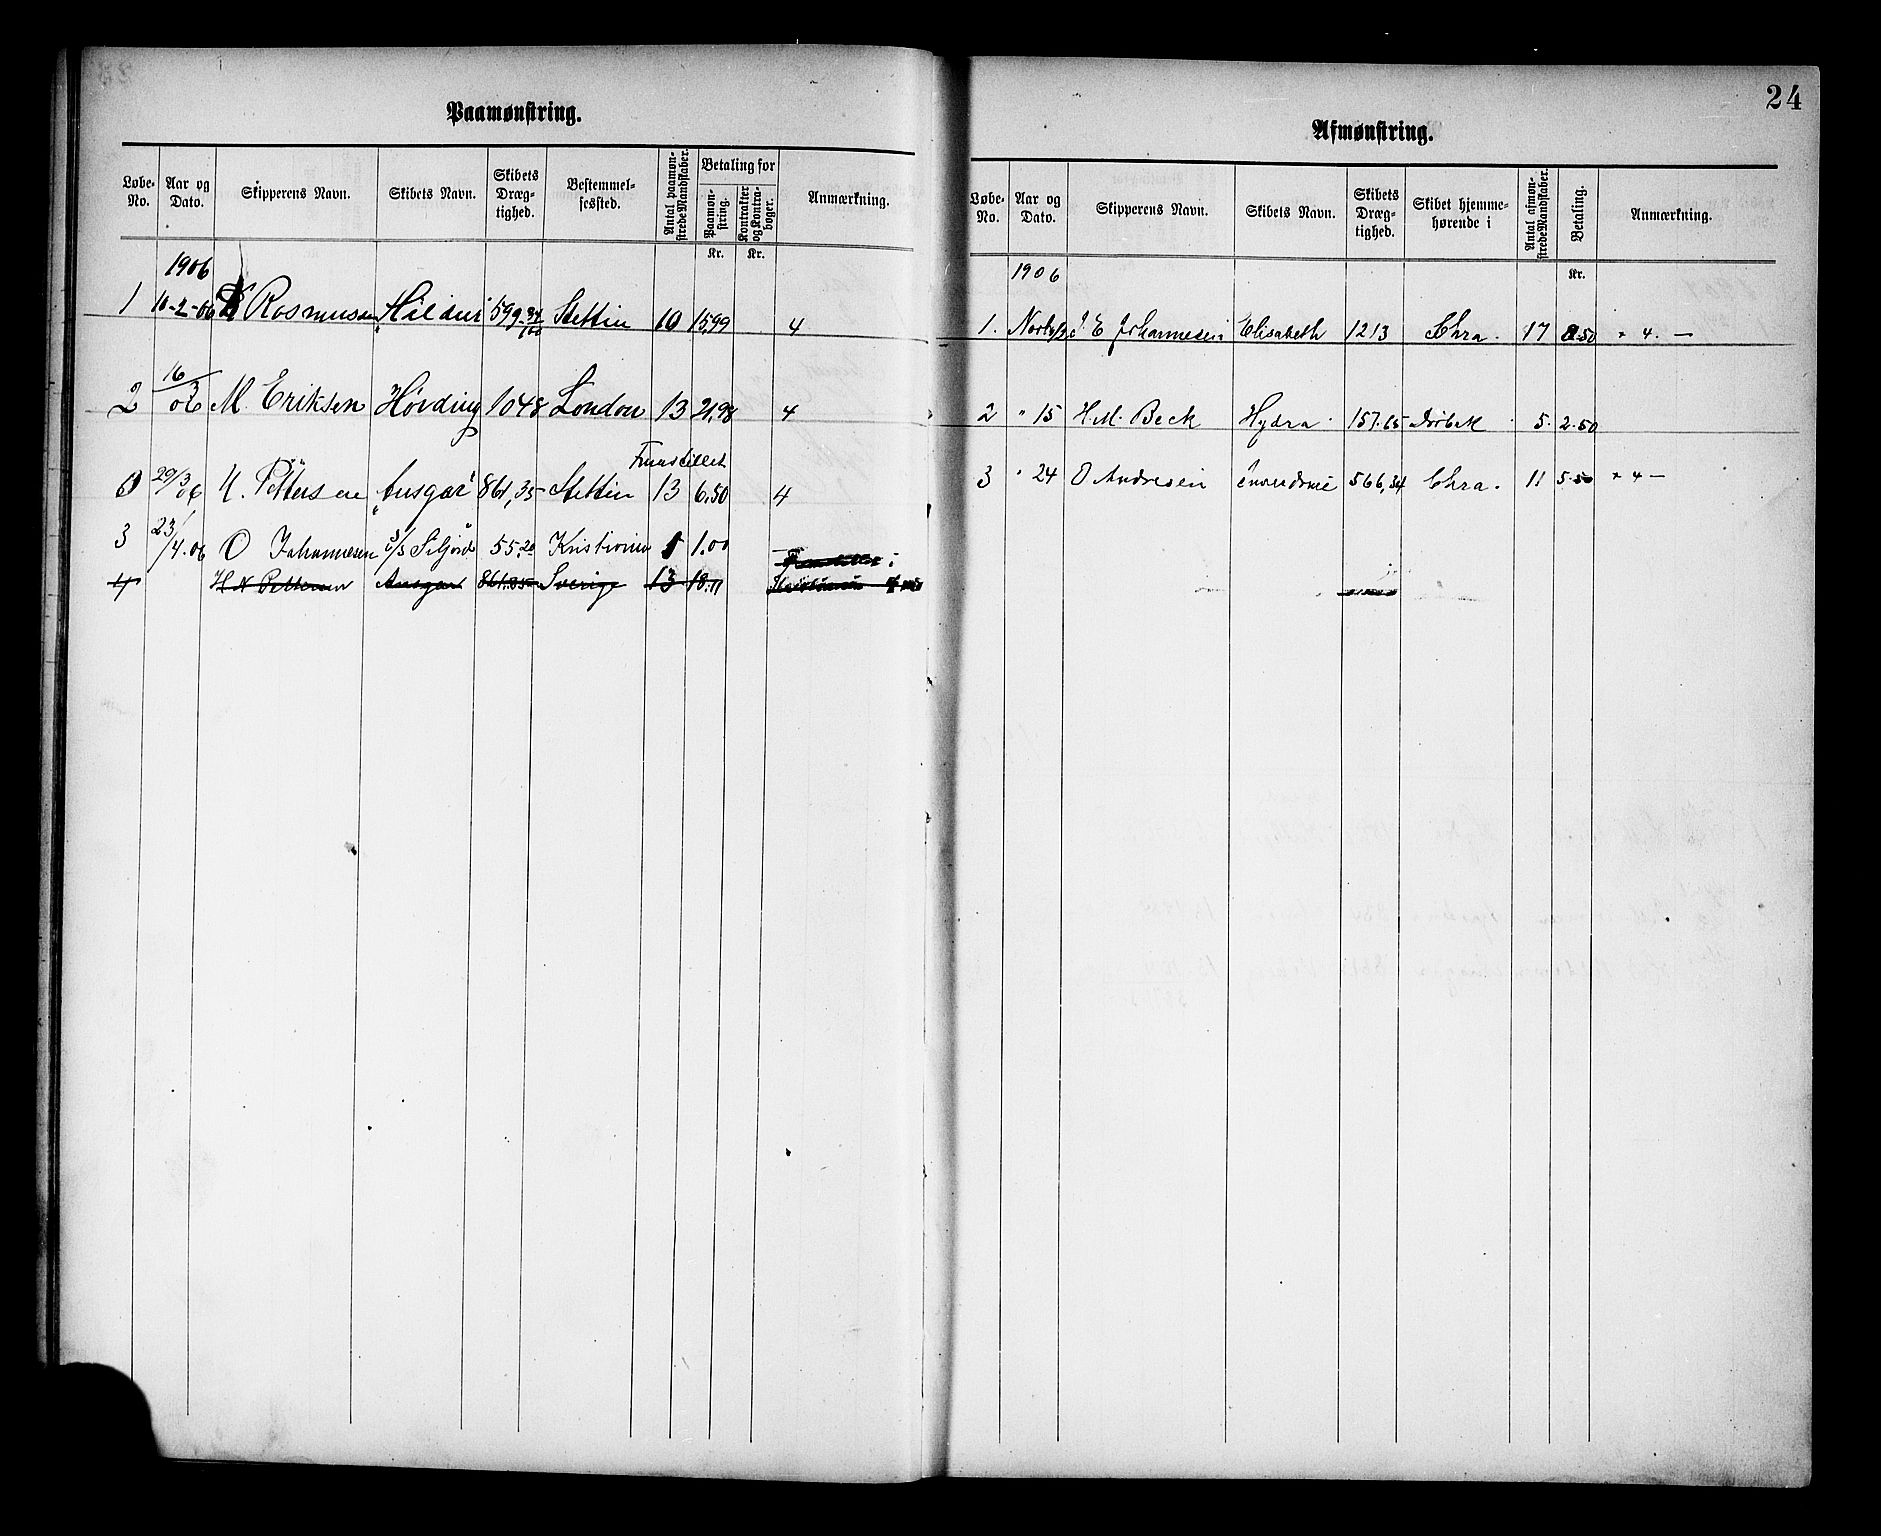 24
Paamønstring.
Løbe-No. Aar og Dato. Skipperens Navn. Skibets Navn. Skibets Dræg-tighed. Bestemmel-sessted. Antal paamøn-strede Mandskaber. Betaling for Paamøn-string. Kontrakter og Kontra-bøger. Anmærkning.
Kr. Kr.
1906
1 10-2-06 Rasmussen Hildur 599 34/100 Stettin 10 15,99 4
2 16/3 06 M. Eriksen Høvding 1048 London 13 21,98 4
29/3 06 N. Pettersen "Ansgar" 861,35 Stettin 13 6,50 4
3 23/4.06 O Johannesen S/S Siljord 55.20 Kristiania 1.00
4 H N Pettersen Ansgar 861.35 Sverige 13 18.11
Afmønstring.
Løbe-No. Aar og Dato. Skipperens Navn. Skibets Navn. Skibets Dræg-tighed. Skibet hjemme-hørende i Antal afmøn-strede Mandskaber. Betaling. Anmærkning.
Kr.
1906
1. J. E Johannesen Elisabeth 1213 Chra. 17 8.50 " 4. —
2 " 15 H. M. Beck Hydra 157.65 5. 2.50
3 " 24 O Andresen 566,34 Chra. 11 5.50 " 4 —